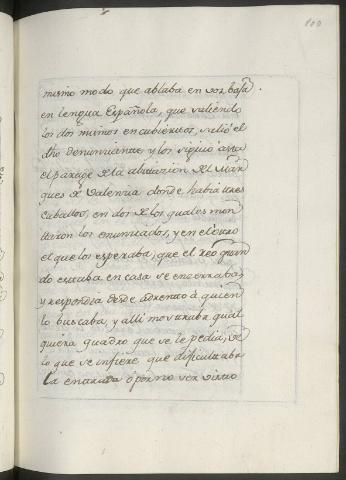 100
mismo modo que ablaba en voz baja
en lengua Española, que saliendo
los dos mismos encubiertos, salió el
dho denunciante y los siguió asta
el parage de la abitazion del Mar
ques de Valencia donde habia tres
caballos, en dos de los quales mon
taron los enunciados, y en el otro
el que los esperaba; que el reo quan
do estaba en casa se encerraba
y respondia desde adrentro á quien
lo buscaba, y alli mostraba qual
quiera quadro que se le pedia; de
lo que se infiere que dificultaba
la entrada ó por no ser visto